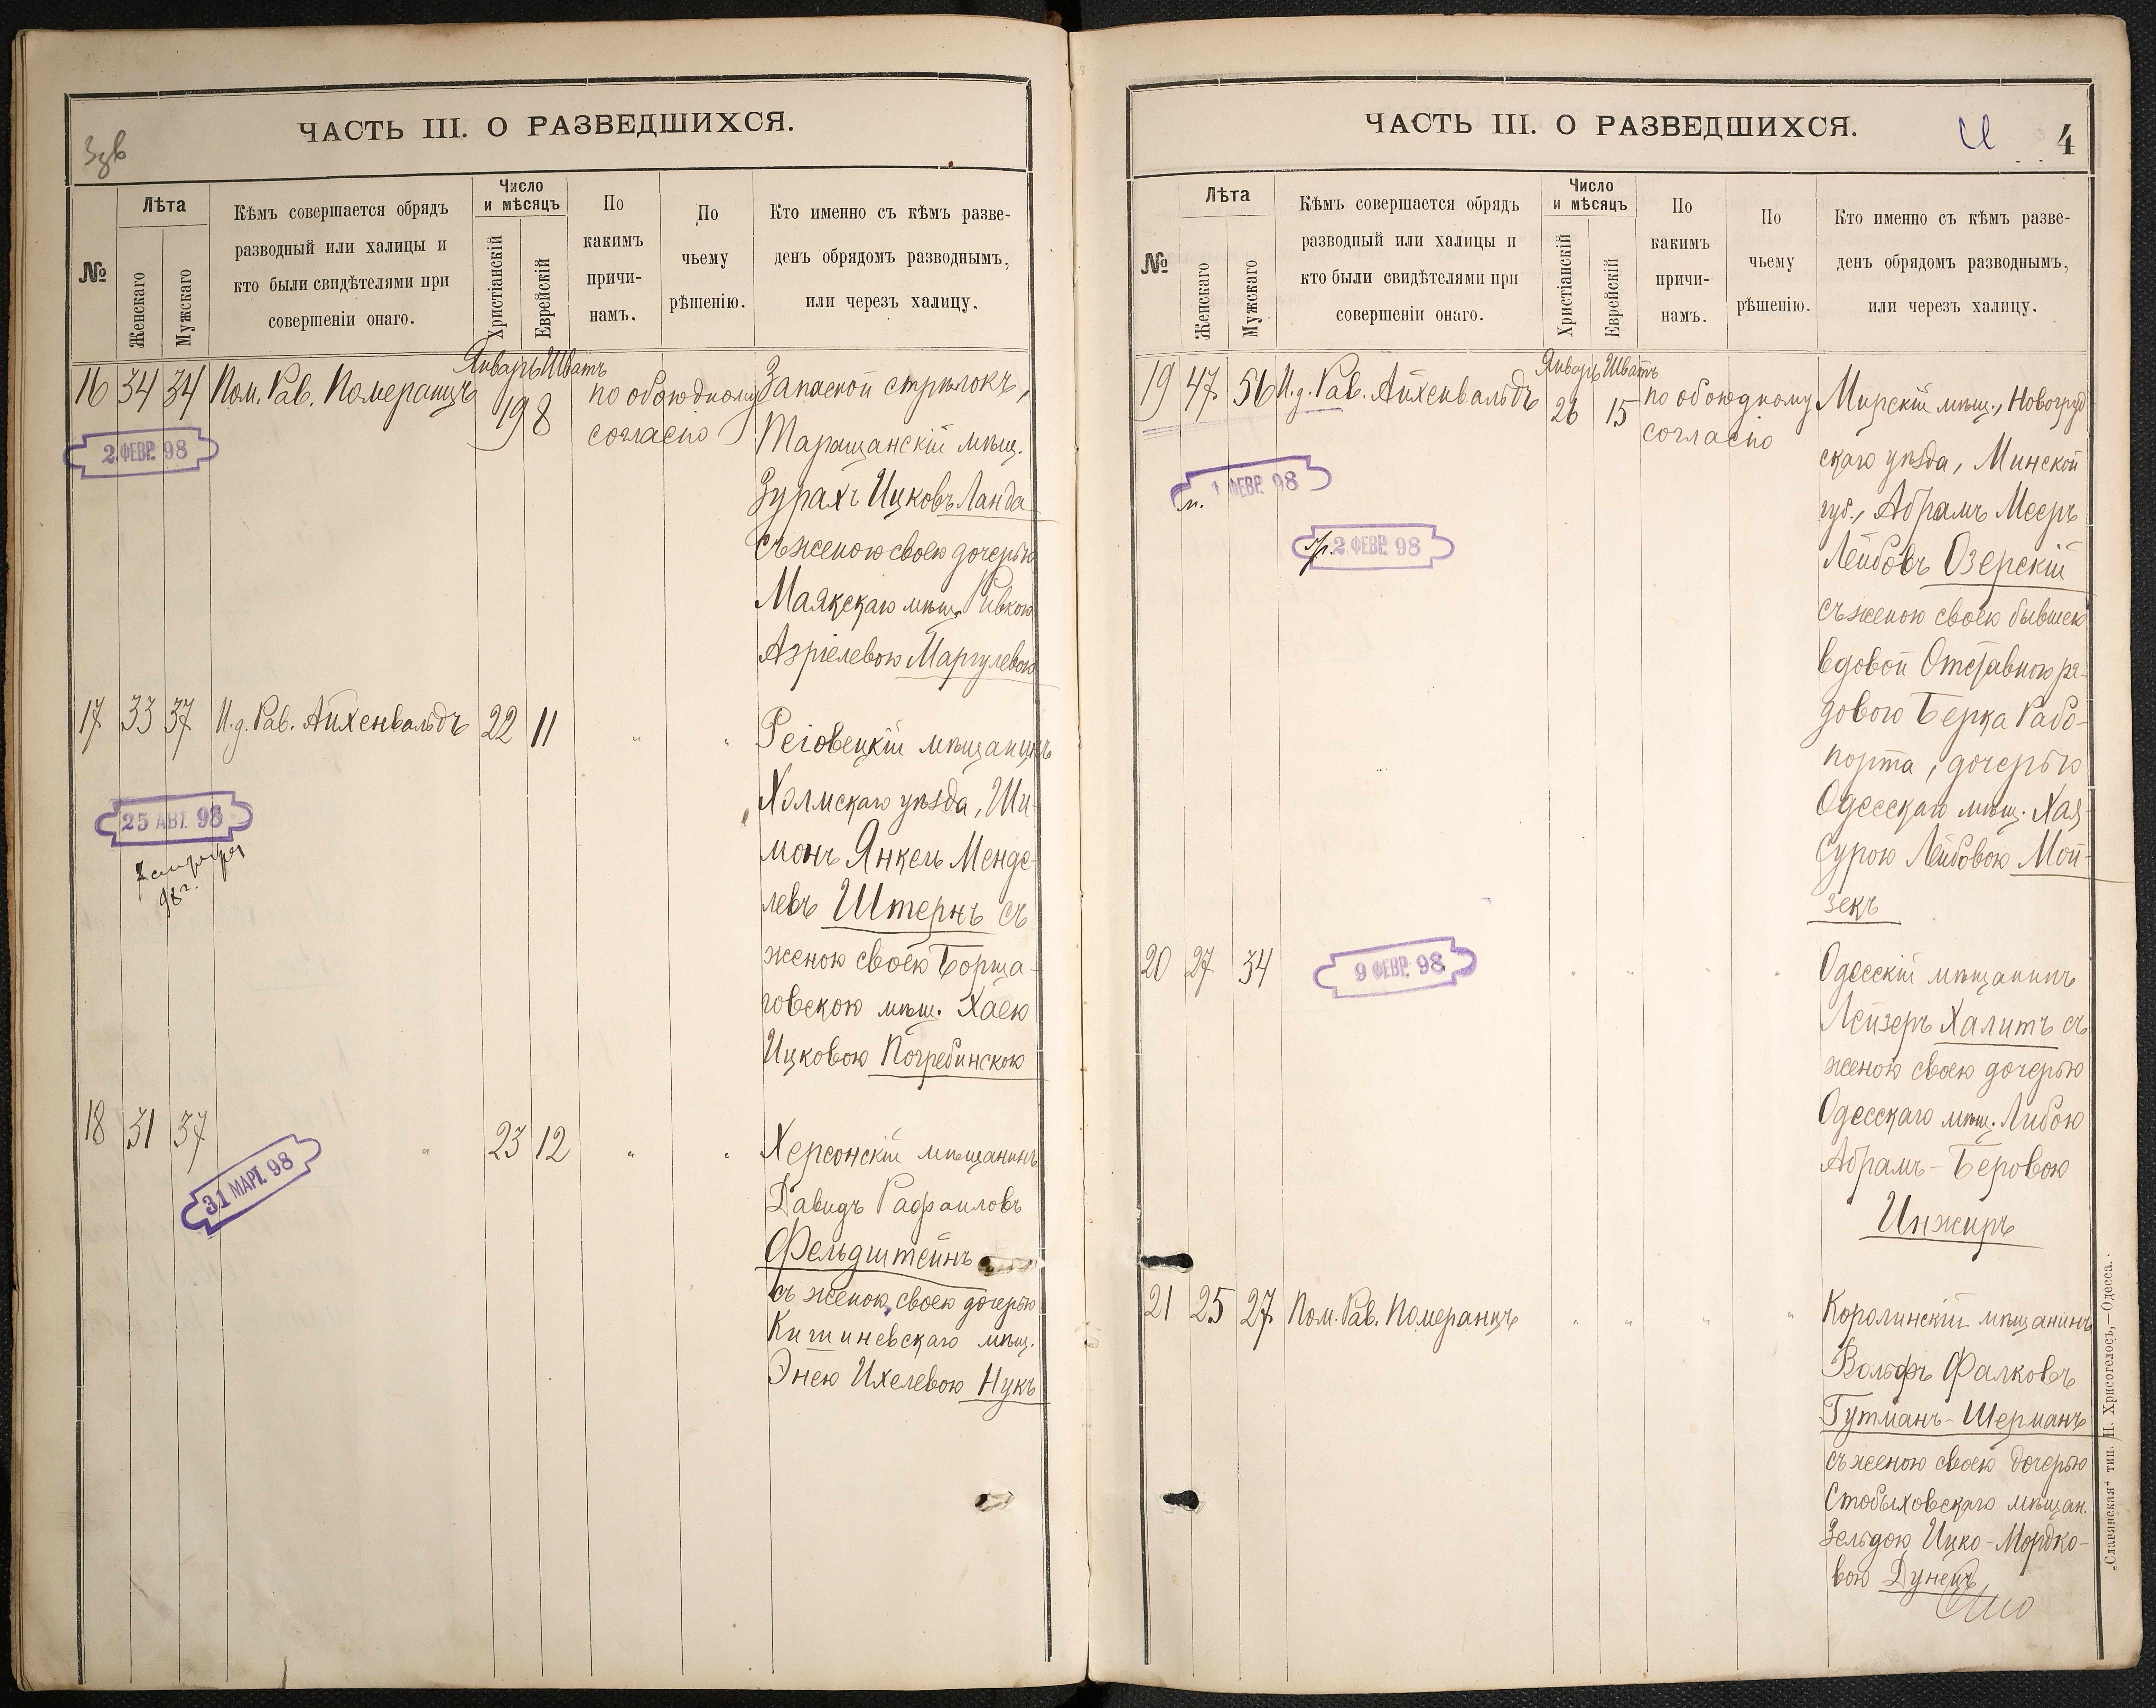 ЧАСТЬ III. О РАЗВЕДШИХСЯ.
№
Лѣта
Женскаго
Мужскаго
Кѣмъ совершается обрядъ
разводный или халицы и
кто были свидѣтелями при
совершеніи онаго.
Число
и мѣсяцъ
Христіанскій
Еврейскій
По
какимъ
причи-
намъ.
По
чьему
рѣшенію.
Кто именно съ кѣмъ разве-
денъ обрядомъ разводнымъ,
или черезъ халицу.
Январь Шватъ
16 34 34 Пом. Рав. Померанцъ 19 8 по обоюдному
согласію
Запасной стрѣлокъ,
Таращанскій мѣщ.
Зурахъ Ицковъ Ланда
съ женою своею дочерью
Маякскаго мѣщ. Ривкою
Азріелевою Маргулевою
2 ФЕВР. 98
17 33 37 И.д. Рав. Айхенвальдъ 22 11 " "
Реіовецкій мѣщанинъ
Холмскаго уѣзда, Ши-
монъ Янкель Менде-
левъ Штернъ съ
женою своею Борща-
говскою мѣщ. Хаею
Ицковою Погребинскою
25 АВГ. 98
98 г.
18 31 37 " 23 12 " "
Херсонскій мѣщанинъ
Давидъ Рафаиловъ
Фельдштейнъ
съ женою своею дочерью
Кишиневскаго мѣщ.
Энею Ихелевою Нукъ
31 МАРТ. 98
ЧАСТЬ III. О РАЗВЕДШИХСЯ.
4
№
Лѣта
Женскаго
Мужскаго
Кѣмъ совершается обрядъ
разводный или халицы и
кто были свидѣтелями при
совершеніи онаго.
Число
и мѣсяцъ
Христіанскій
Еврейскій
По
какимъ
причи-
намъ.
По
чьему
рѣшенію.
Кто именно съ кѣмъ разве-
денъ обрядомъ разводнымъ,
или черезъ халицу.
Январь Шватъ
19 47 56 И.д. Рав. Айхенвальдъ 26 15 по обоюдному
согласію
Мирскій мѣщ., Новогруд
скаго уѣзда, Минской
губ., Абрамъ Мееръ
Лейбовъ Озерскій
съ женою своею бывшею
вдовой Отставного ря-
дового Берка Рабо-
порта, дочерью
Одесскаго мѣщ. Хая-
Сурою Лейбовою Мой-
зекъ
1 ФЕВР. 98
2 ФЕВР. 98
20 27 34 " " " "
9 ФЕВР. 98
Одесскій мѣщанинъ
Лейзеръ Халитъ съ
женою своею дочерью
Одесскаго мѣщ. Либою
Абрамъ-Беровою
Инжиръ
21 25 27 Пом. Рав. Померанцъ " " " "
Королинскій мѣщанинъ
Вольфъ Фалковъ
Гутманъ-Шерманъ
съ женою своею дочерью
Стобыховскаго мѣщан.
Зельдою Ицко-Мордко-
вою Дунецъ
„Славянская“ тип. Н. Хрисогелосъ,—Одесса.